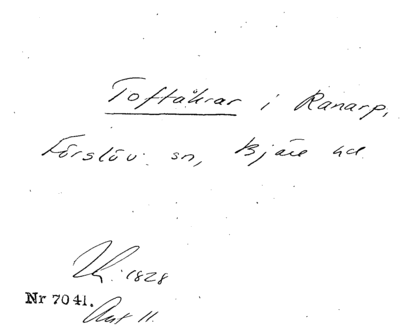 Toftåkrar i Ranarp,
Förslöv sn, Bjäre hd
1828
Nr 7041.
Akt 11.